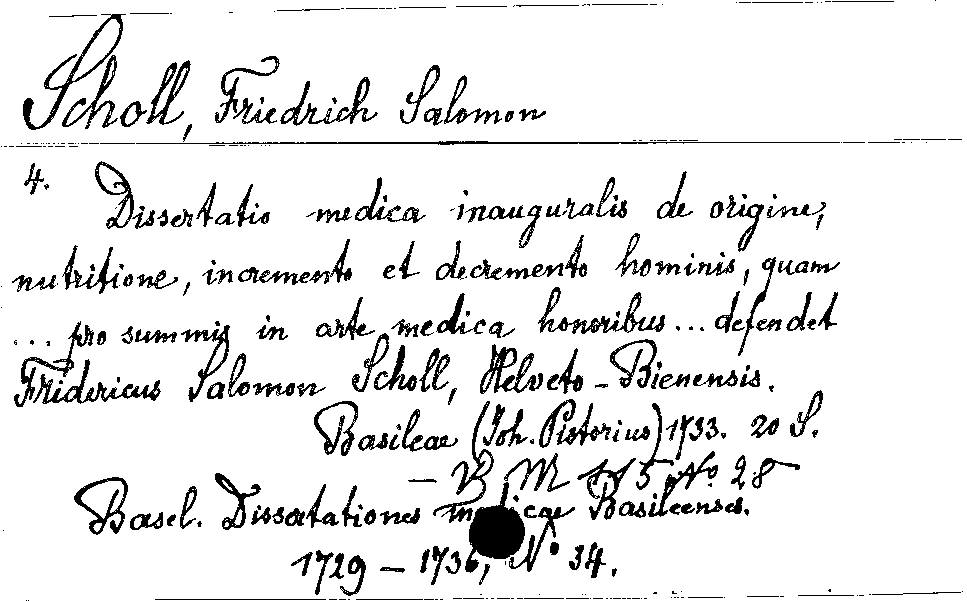 Scholl, Friedrich Salomon
4.
Dissertatio medica inauguralis de origine,
nutritione, incremento et decremento hominis, quam
... pro summis in arte medica honoribus ... defendet
Fridericus Salomon Scholl, Helveto-Bienensis.
Basileae (Joh. Pistorius) 1733. 20 S.
— B M No. 28
Basel. Dissertationes medicae Basileenses.
1729 – 1736, No 34.